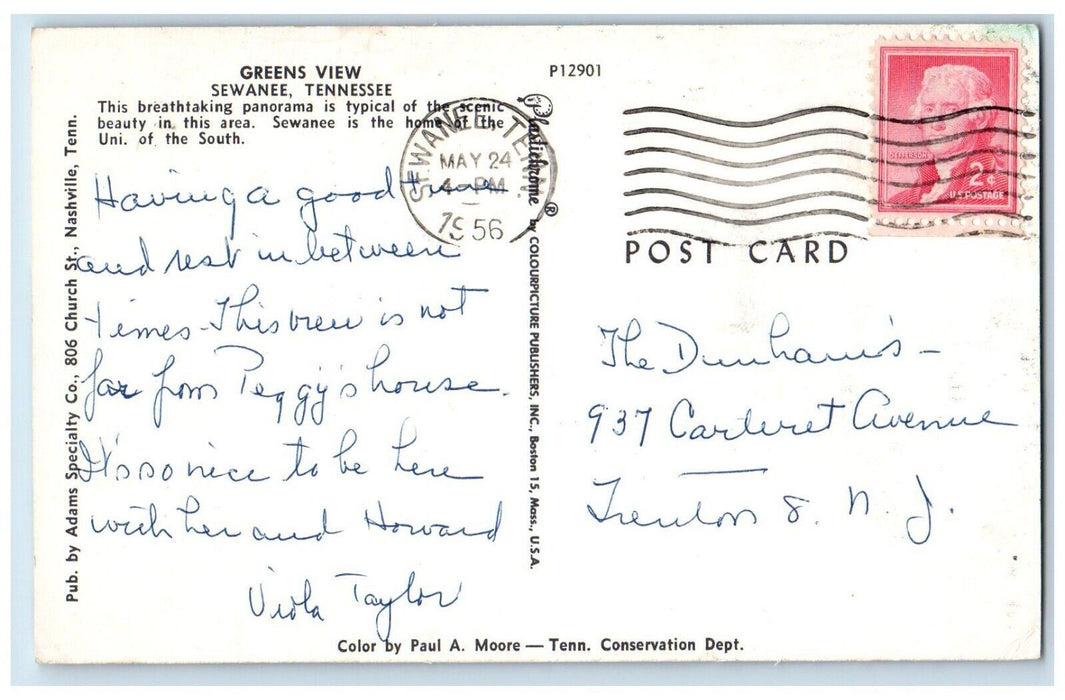 GREENS VIEW
SEWANEE, TENNESSEE
This breathtaking panorama is typical of the scenic
beauty in this area. Sewanee is the home of the
Uni. of the South.
P12901
Having a good time
and rest in between
times - This view is not
far from Peggy's house.
It's so nice to be here
with her and Howard
Viola Taylor
Pub. by Adams Specialty Co., 806 Church St., Nashville, Tenn.
Plastichrome ® by COLOURPICTURE PUBLISHERS, INC., Boston 15, Mass., U.S.A.
SEWANEE, TENN.
MAY 24
4 - PM
1956
JEFFERSON
2¢
U.S. POSTAGE
POST CARD
The Dunham's -
937 Carteret Avenue
Trenton 8. N. J.
Color by Paul A. Moore — Tenn. Conservation Dept.